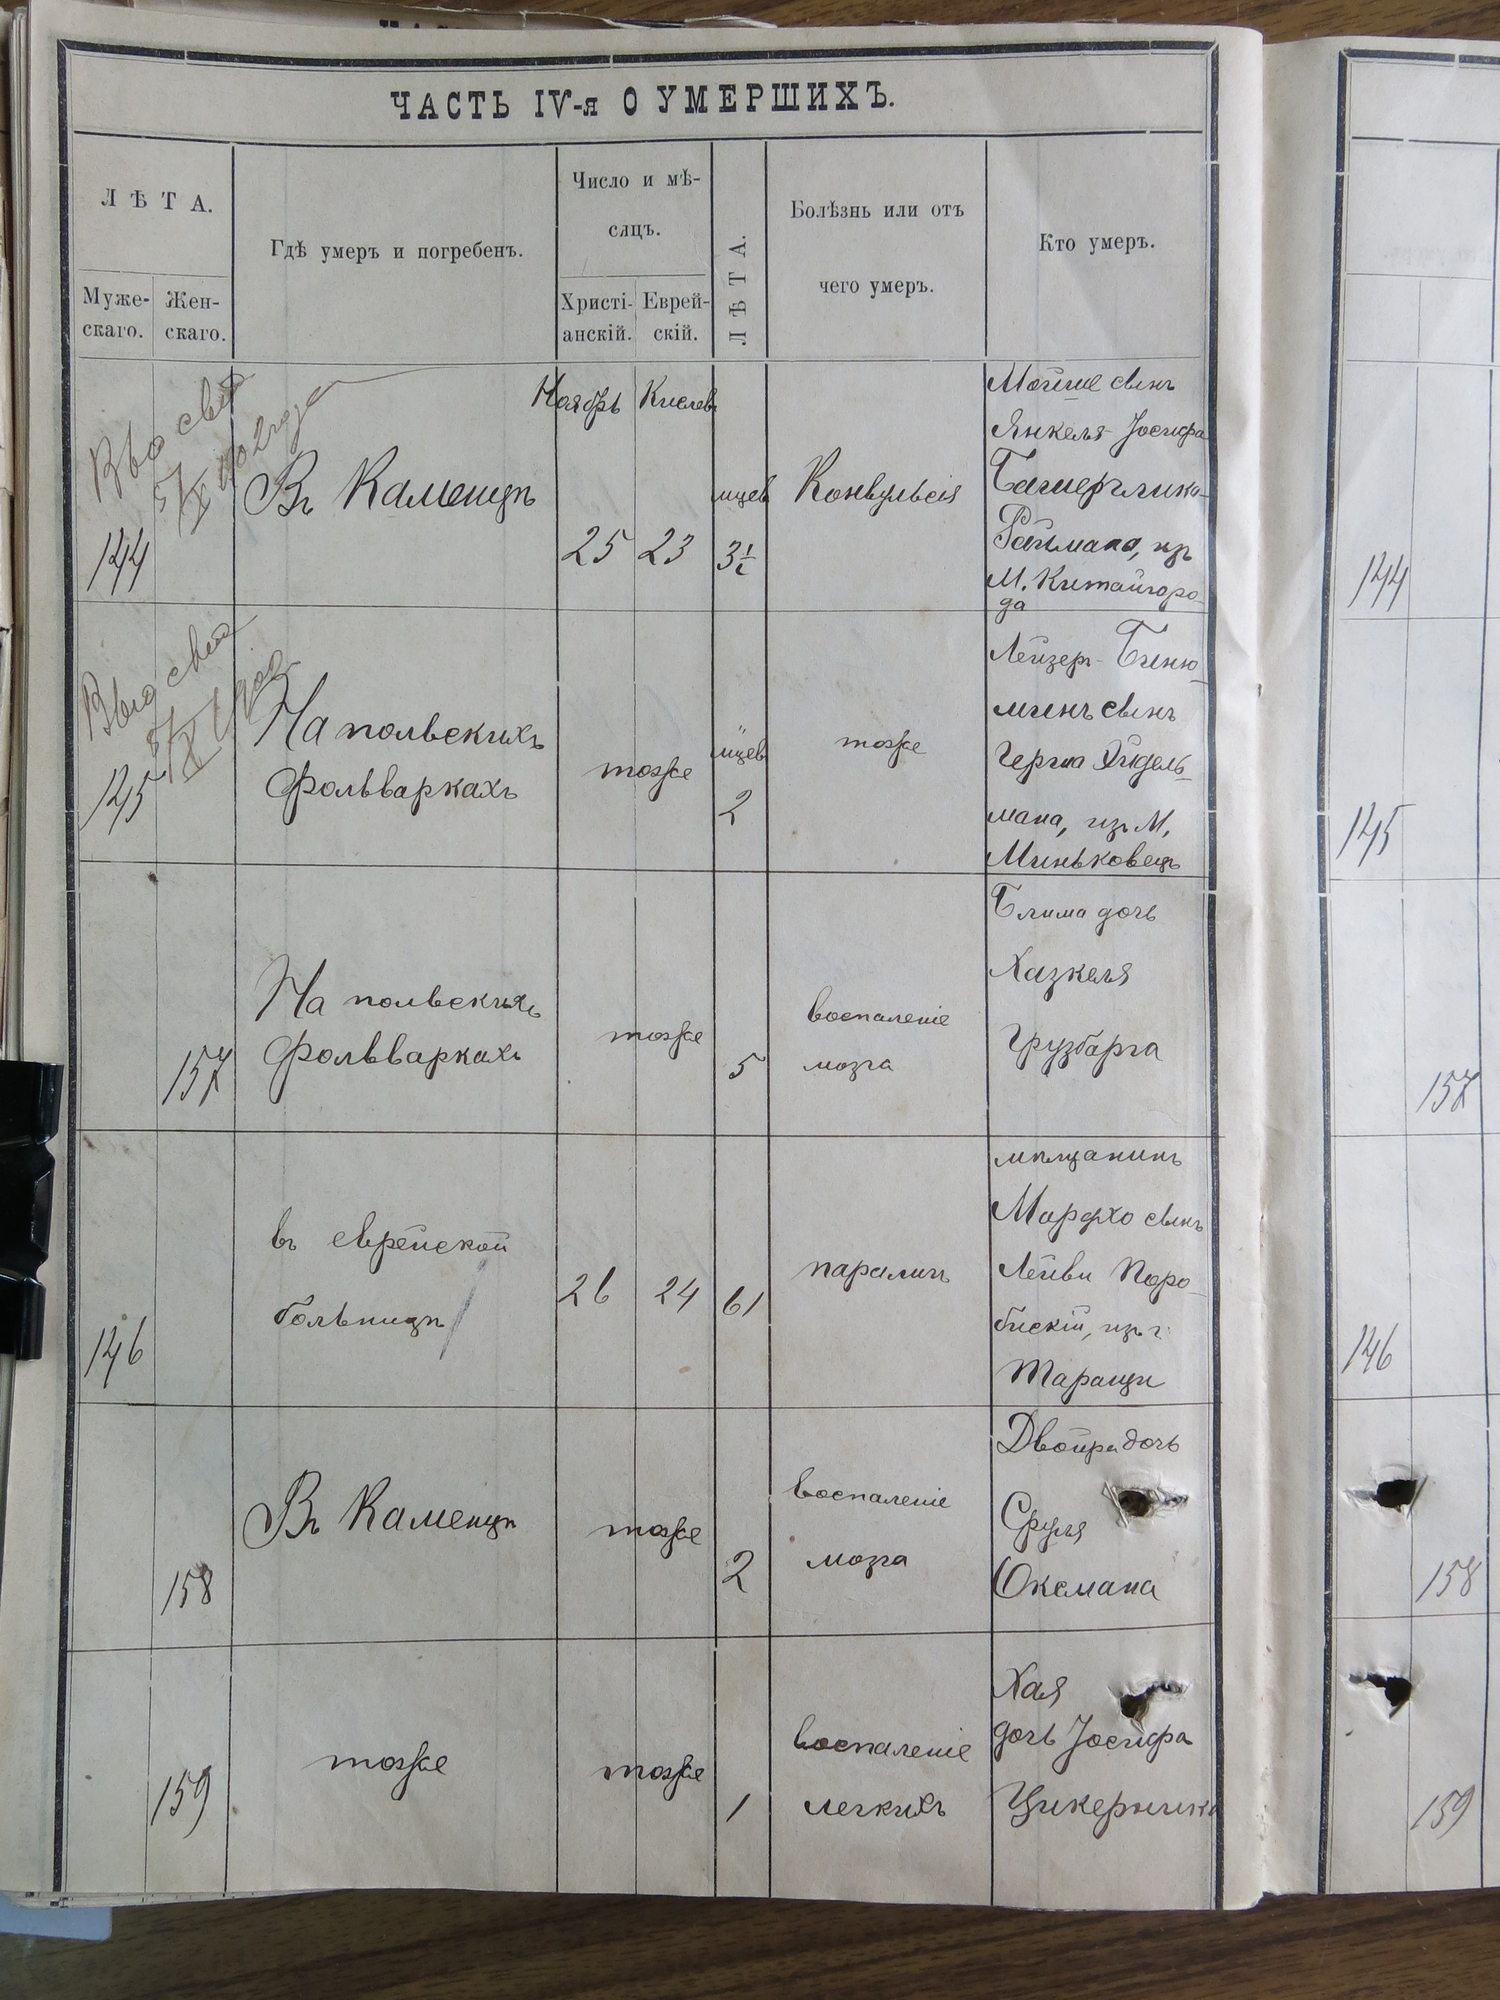 ЧАСТЬ IV-я О УМЕРШИХЪ.
ЛѢТА.
Муже-
скаго.
Жен-
скаго.
Гдѣ умеръ и погребенъ.
Число и мѣ-
сяцъ.
Христі-
анскій.
Еврей-
скій.
ЛѢТА.
Болѣзнь или отъ
чего умеръ.
Кто умеръ.
144
Въ Каменцѣ
Ноябрь
25
Кислевъ
23
мцев
3½
Конвульсія
Мойше сынъ
Янкеля-Іосифа
Рейзмана, изъ
М. Китайгоро-
да
145
На польскихъ
фольваркахъ
тоже
мцев
2
тоже
Лейзеръ-Биню-
минъ сынъ
Герша Эйдель-
мана, изъ М.
Миньковецъ
157
На польскихъ
фольваркахъ
тоже
5
воспаленіе
мозга
Блима дочь
Хазкеля
Грузбарга
146
въ еврейской
больницѣ
26
24
61
параличъ
мѣщанинъ
Мордхо сынъ
Лейви Поро-
бискій, изъ г.
Таращи
158
Въ Каменцѣ
тоже
2
воспаленіе
мозга
Двойра дочь
Сруля
Оксмана
159
тоже
тоже
1
воспаленіе
легкихъ
Хая
дочь Іосифа
Цикерника
144
145
157
146
158
159